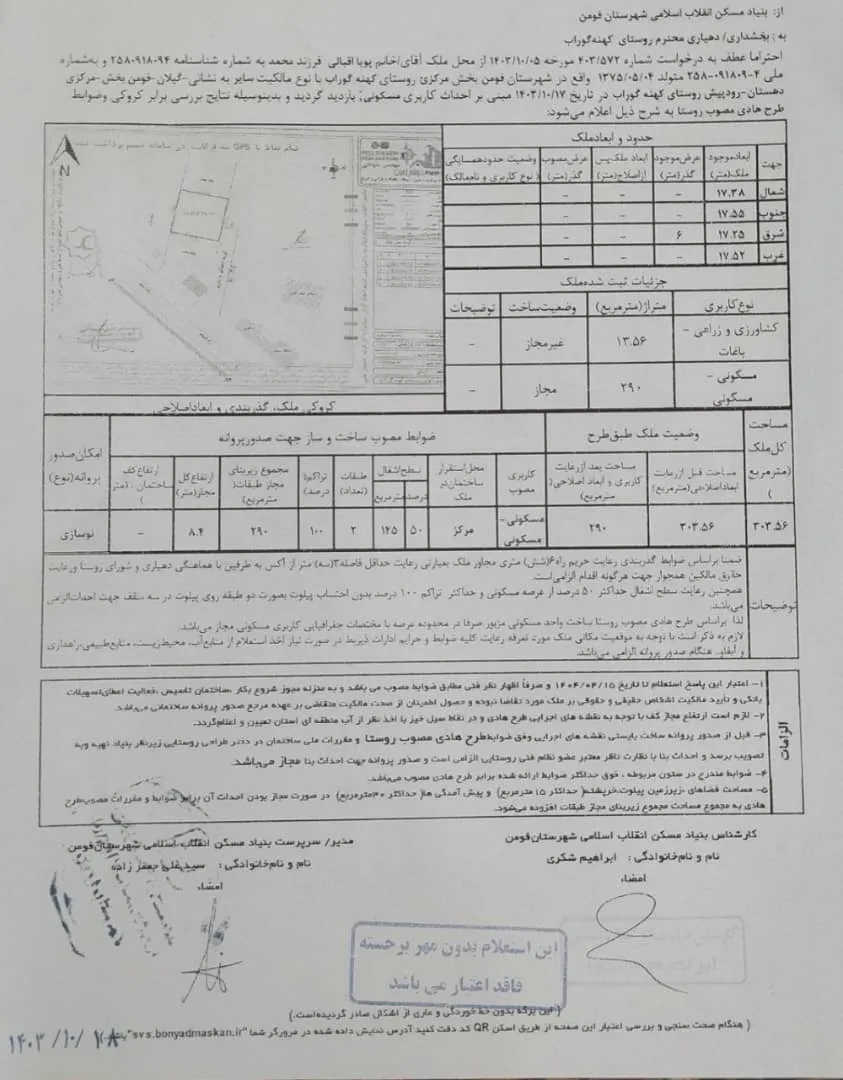 از: بنیاد مسکن انقلاب اسلامی شهرستان فومن
به: بخشداری/ دهیاری محترم روستای کهنه‌گوراب
احتراما عطف به درخواست شماره ۴۰۳/۵۷۲ مورخه ۱۴۰۳/۱۰/۰۵ از محل ملک آقای/خانم پویا اقبالی فرزند محمد به شماره شناسنامه ۹۴-۲۵۸۰۹۱۸ و به‌شماره
ملی ۴-۲۵۸۰۰۹۱۸۰۹ متولد ۱۳۷۵/۰۵/۰۴ واقع در شهرستان فومن بخش مرکزی روستای کهنه گوراب با نوع مالکیت سایر به نشانی:-گیلان-فومن-بخش-مرکزی
دهستان-رودپیش-روستای کهنه گوراب در تاریخ ۱۴۰۳/۱۰/۱۷ مبنی بر احداث کاربری مسکونی; بازدید گردید و بدینوسیله نتایج بررسی برابر کروکی وضوابط
طرح هادی مصوب روستا به شرح ذیل اعلام می‌شود:
N
حدود و ابعادملک
جهت ابعادموجود ملک(متر) عرض‌موجود گذر(متر) ابعاد ملک‌پس ازاصلاح(متر) عرض‌مصوب گذر(متر) وضعیت حدودهمسایگی (نوع کاربری و نام‌مالک)
شمال ۱۷.۳۸ - - -
جنوب ۱۷.۵۵ - - -
شرق ۱۷.۲۵ ۶ - -
غرب ۱۷.۵۲ - - -
جزئیات ثبت شده‌ملک
نوع‌کاربری متراژ(مترمربع) وضعیت‌ساخت توضیحات
کشاورزی و زراعی - باغات ۱۳.۵۶ غیرمجاز -
مسکونی - مسکونی ۲۹۰ مجاز -
کروکی ملک، گذربندی و ابعاداصلاحی
مساحت کل‌ملک (مترمربع) وضعیت ملک طبق‌طرح ضوابط مصوب ساخت و ساز جهت صدورپروانه امکان‌صدور پروانه(نوع)
مساحت قبل ازرعایت ابعاداصلاحی(مترمربع) مساحت بعد ازرعایت کاربری و ابعاد اصلاحی(مترمربع) کاربری مصوب محل‌استقرار ساختمان‌در ملک سطح‌اشغال درصد مترمربع طبقات (تعداد) تراکم(درصد) مجموع زیربنای مجاز طبقات(مترمربع) ارتفاع‌کل مجاز(متر) ارتفاع‌کف ساختمان.(متر)
۳۰۳.۵۶ ۳۰۳.۵۶ ۲۹۰ مسکونی-مسکونی مرکز ۵۰ ۱۴۵ ۲ ۱۰۰ ۲۹۰ ۸.۴ - نوسازی
توضیحات
ضمنا براساس ضوابط گذربندی رعایت حریم راه ۶(شش) متری مجاور ملک بعبارتی رعایت حداقل فاصله۳(سه) متر از آکس به طرفین با هماهنگی دهیاری و شورای روستا ورعایت
حقوق مالکین همجوار جهت هرگونه اقدام الزامی‌است.
همچنین رعایت سطح اشغال حداکثر ۵۰ درصد از عرصه مسکونی و حداکثر تراکم ۱۰۰ درصد بدون احتساب پیلوت بصورت دو طبقه روی پیلوت در سه سقف جهت احداث‌الزامی
می‌باشد.
لذا براساس طرح هادی مصوب روستا ساخت واحد مسکونی مزبور صرفا در محدوده عرصه با مختصات جغرافیایی کاربری مسکونی مجاز می‌باشد.
لازم به ذکر است با توجه به موقعیت مکانی ملک مورد تعرفه رعایت کلیه ضوابط و حرایم ادارات ذیربط در صورت نیاز اخذ استعلام از منابع‌آب، محیط‌زیست، منابع‌طبیعی،راهداری
و آبفاو.. هنگام صدور پروانه الزامی می‌باشد.
الزامات
۱- اعتبار این پاسخ استعلام تا تاریخ ۱۴۰۴/۰۴/۱۵ و صرفاً اظهار نظر فنی مطابق ضوابط مصوب می باشد و به منزله مجوز شروع بکار ،ساختمان تاسیس ،فعالیت اعطای‌تسهیلات
بانکی و تأیید مالکیت اشخاص حقیقی و حقوقی بر ملک مورد تقاضا نبوده و حصول اطمینان از صحت مالکیت متقاضی بر عهده مرجع صدور پروانه ساختمانی می‌باشد.
۲- لازم است ارتفاع مجاز کف با توجه به نقشه های اجرایی طرح هادی و در نقاط سیل خیز با اخذ نظر از آب منطقه ای استان تعیین و اعلام‌گردد.
۳- قبل از صدور پروانه ساخت بایستی نقشه های اجرایی وفق ضوابط‌طرح هادی مصوب روستا و مقررات ملی ساختمان در دفتر طراحی روستایی زیرنظر بنیاد تهیه وبه
تصویب برسد و احداث بنا با نظارت ناظر معتبر عضو نظام فنی روستایی الزامی است و صدور پروانه جهت احداث بنا مجاز می‌باشد.
۴- ضوابط مندرج در ستون مربوطه ، فوق حداکثر ضوابط ارائه شده برابر طرح هادی مصوب می‌باشد.
۵- مساحت فضاهای ،زیرزمین پیلوت،خرپشته( حداکثر ۱۵ مترمربع) و پیش آمدگی ها(حداکثر ۳۰مترمربع) در صورت مجاز بودن احداث آن برابر ضوابط و مقررات مصوب‌طرح
هادی به مجموع مساحت مجموع زیربنای مجاز طبقات افزوده می‌شود.
کارشناس بنیاد مسکن انقلاب اسلامی شهرستان‌فومن
نام و نام‌خانوادگی: ابراهیم شکری
امضاء
مدیر/ سرپرست بنیاد مسکن انقلاب اسلامی شهرستان‌فومن
نام و نام‌خانوادگی: سیدعلی جعفر زاده
امضاء
این استعلام بدون مهر برجسته
فاقد اعتبار می باشد
(این برگه بدون خط خوردگی و عاری از اشکال صادر گردیده‌است.)
( هنگام صحت سنجی و بررسی اعتبار این صفحه از طریق اسکن QR کد دقت کنید آدرس نمایش داده شده در مرورگر شما "svs.bonyadmaskan.ir"
۱۴۰۳/۱۰/۱۸